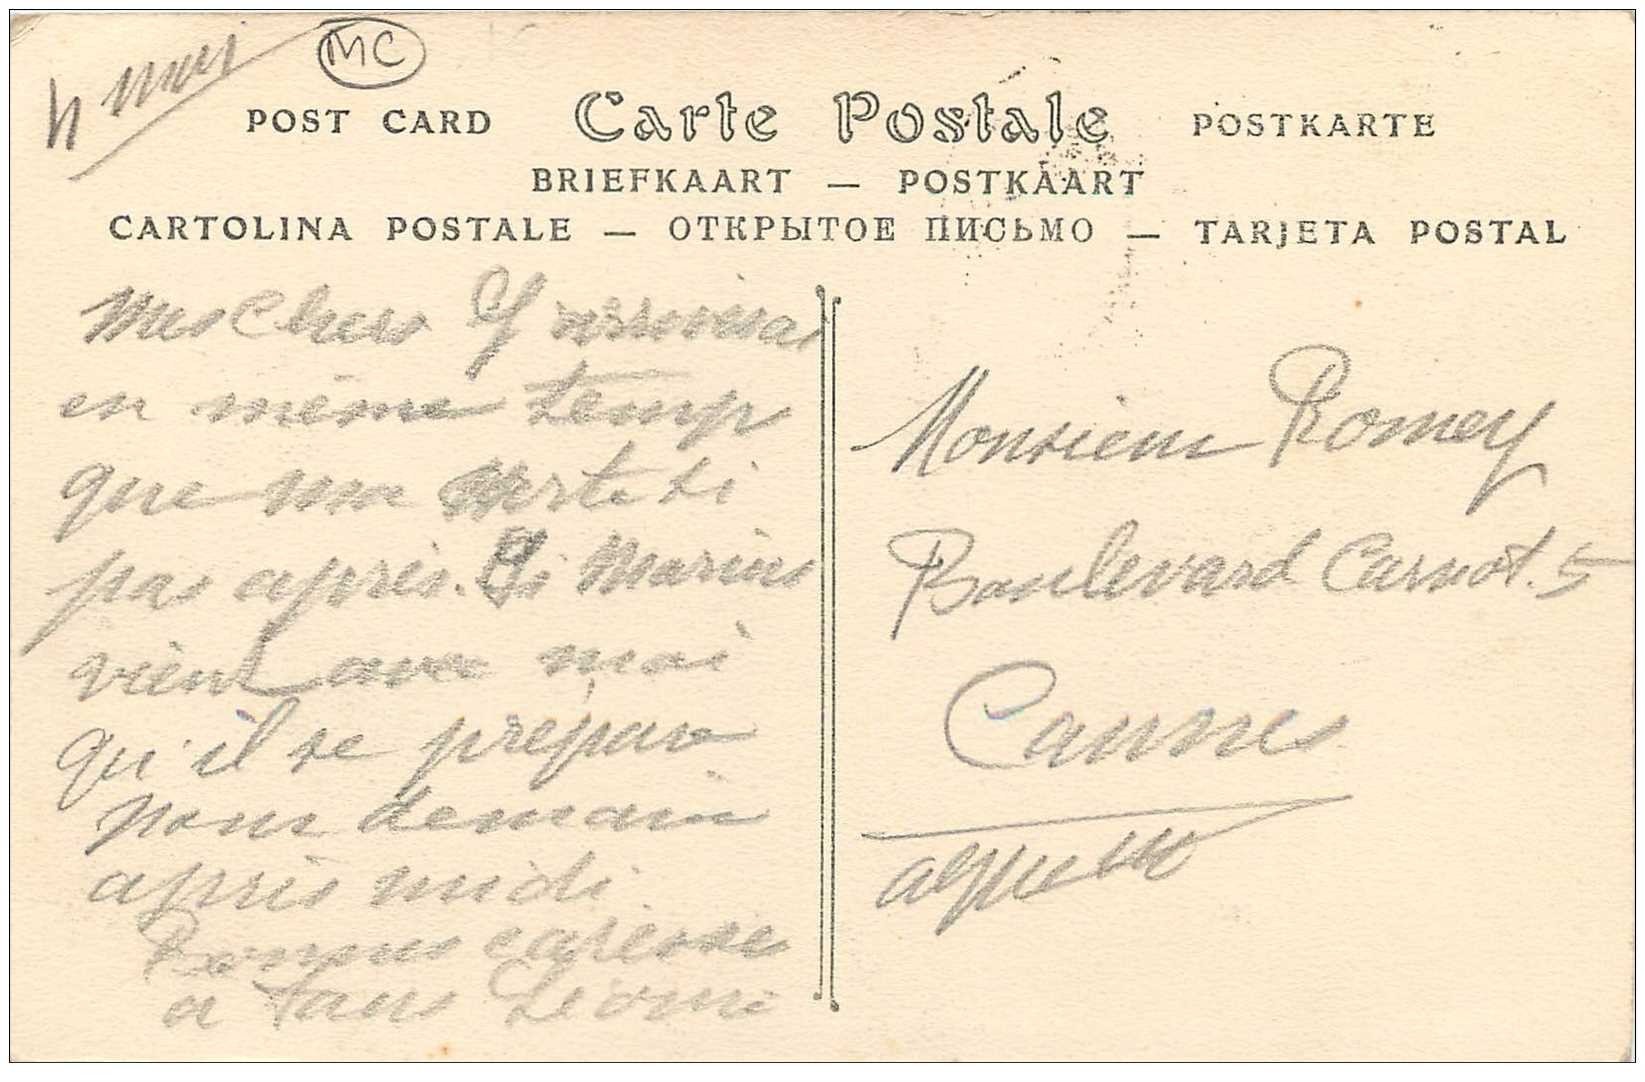 4 mai
MC
POST CARD Carte Postale POSTKARTE
BRIEFKAART — POSTKAART
CARTOLINA POSTALE — ОТКРЫТОЕ ПИСЬМО — TARJETA POSTAL
Mes Chers J'arriverai
en même temp
que ma carte si
pas après. Si Marius
vient avec moi
qu'il se prépare
pour demain
après midi
Bonnes caresse
a tous Léonie
Monsieur Romey
Boulevard Carnot. 5
Cannes